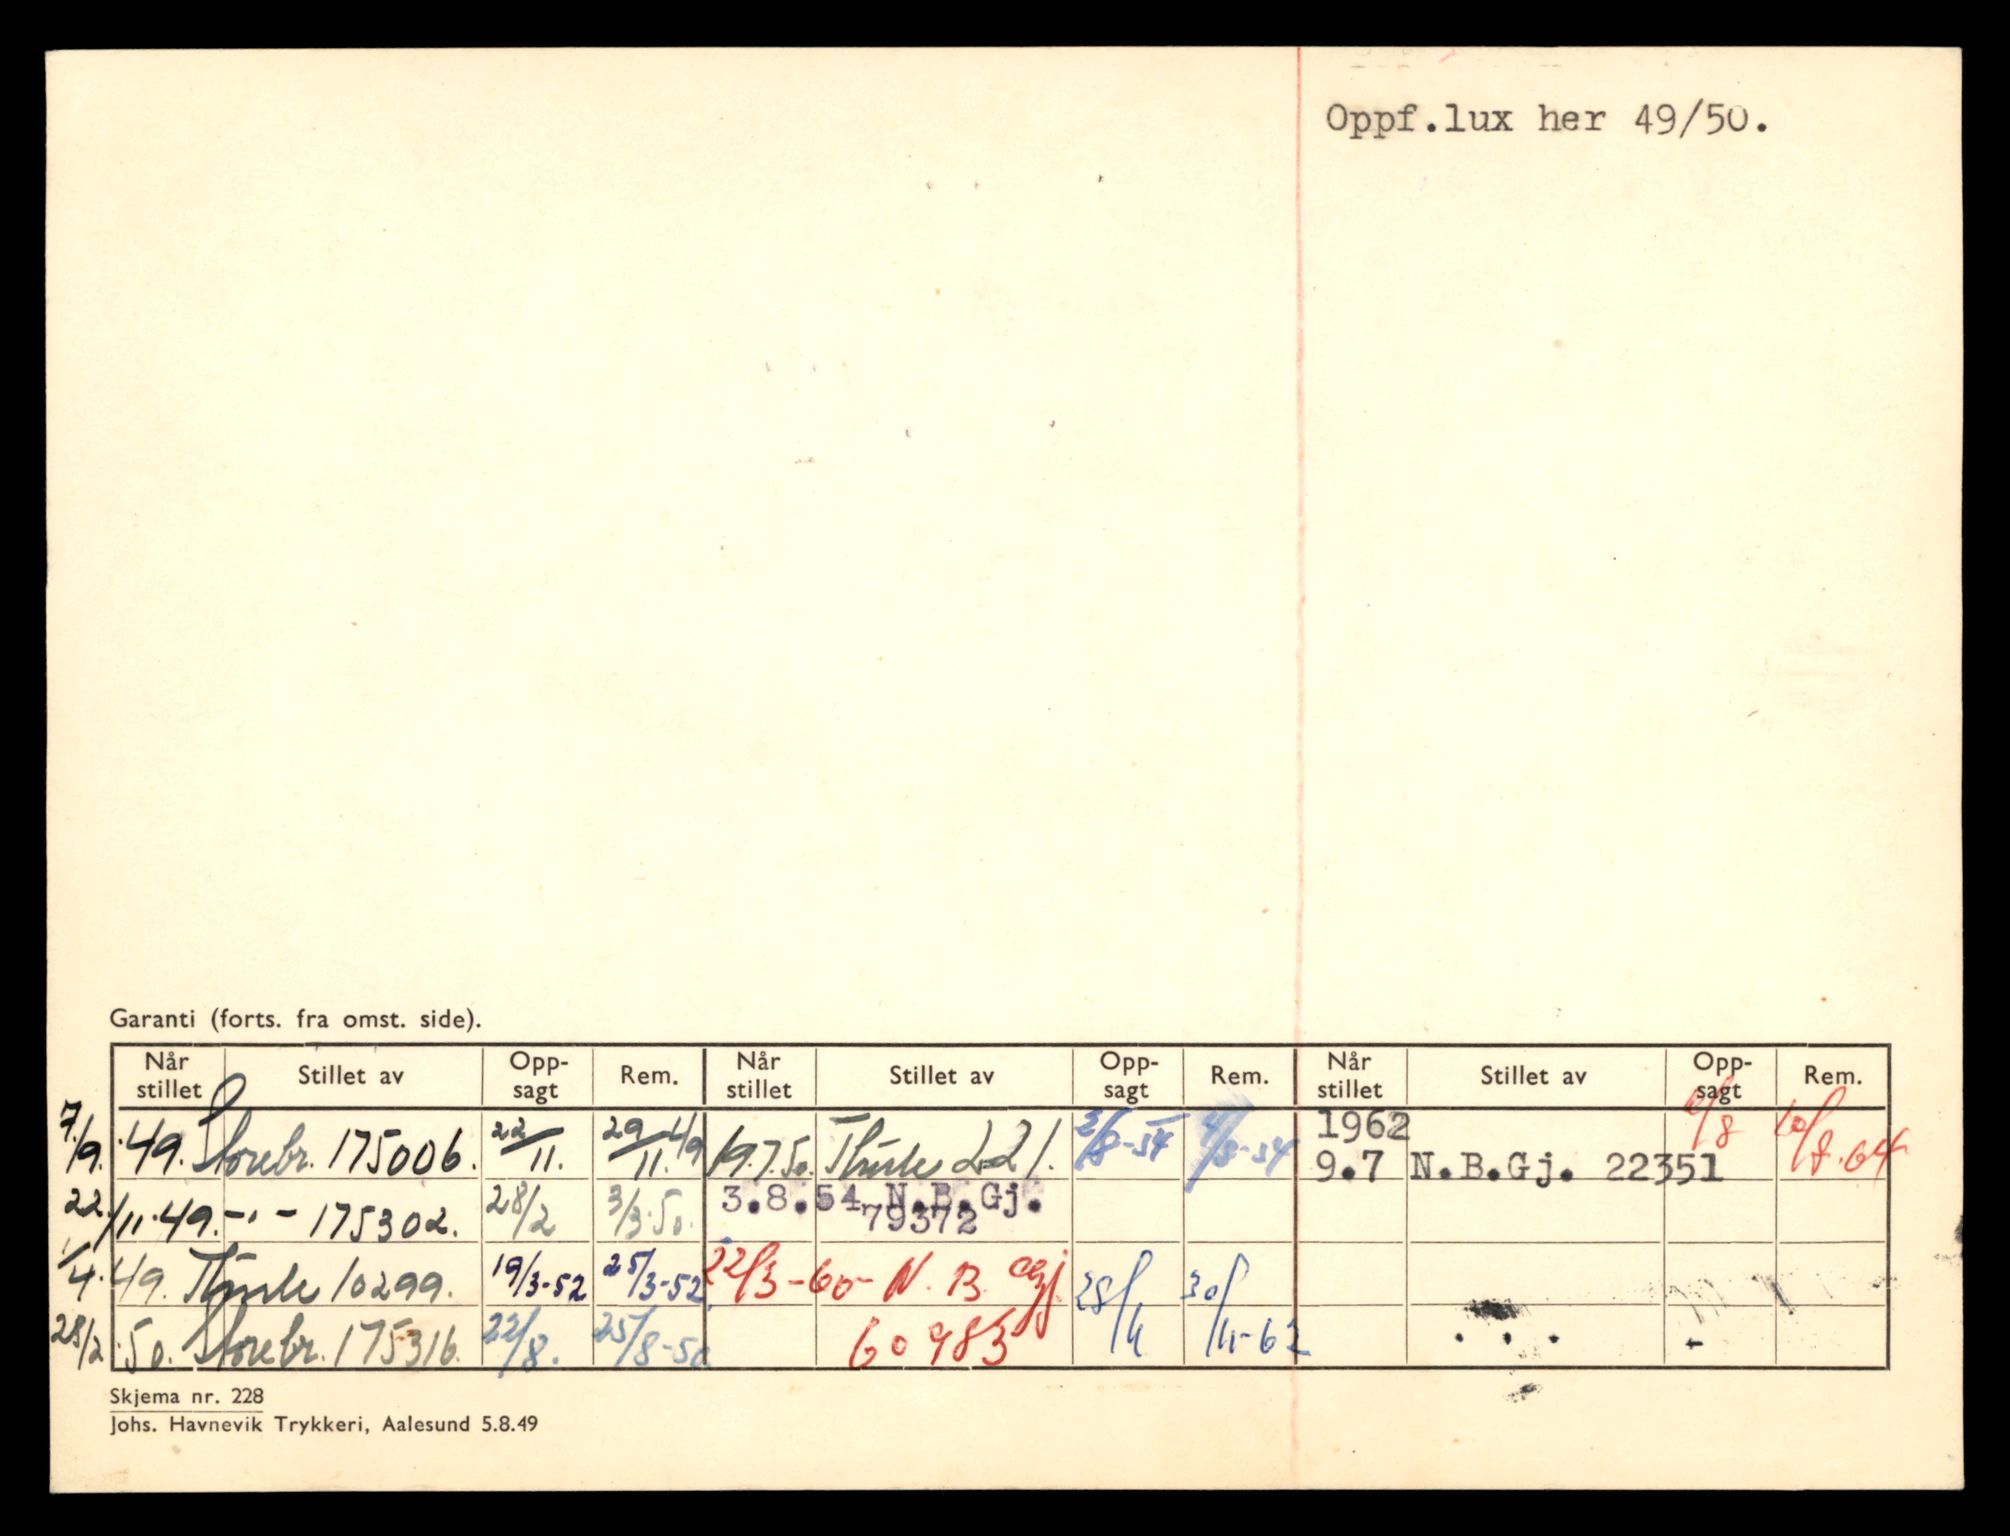 Oppf.lux her 49/50.
Garanti (forts. fra omst. side).
Når stillet Stillet av Opp-sagt Rem. Når stillet Stillet av Opp-sagt Rem. Når stillet Stillet av Opp-sagt Rem.
7/9.49. Storebr. 175006. 22/11. 29/11.
22/11.49. -"- 175302. 28/2 3/3.50.
1/4.49. Thule 10299. 19/3-52 25/3-52
28/2.50. Storebr. 175316. 22/8. 25/8-50
19.7.50. Thule 221. 2/8-54 4/8-54
3.8.54 N.B.Gj.
79372
22/3-60- N.B. Gj. 28/11 30/11-62
60983
1962
9.7 N.B.Gj. 22351 6/8 10/8.64
Skjema nr. 228
Johs. Havnevik Trykkeri, Aalesund 5.8.49